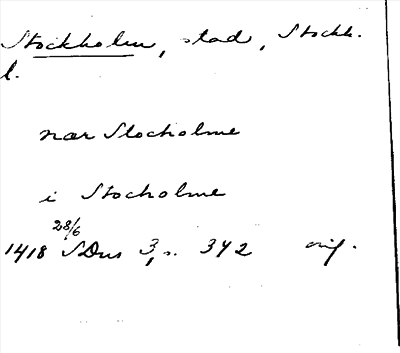 Stockholm, stad, Stockh.
l.
nær Stocholme
i Stocholme
28/6
1418 SDns 3, s. 342 orig.